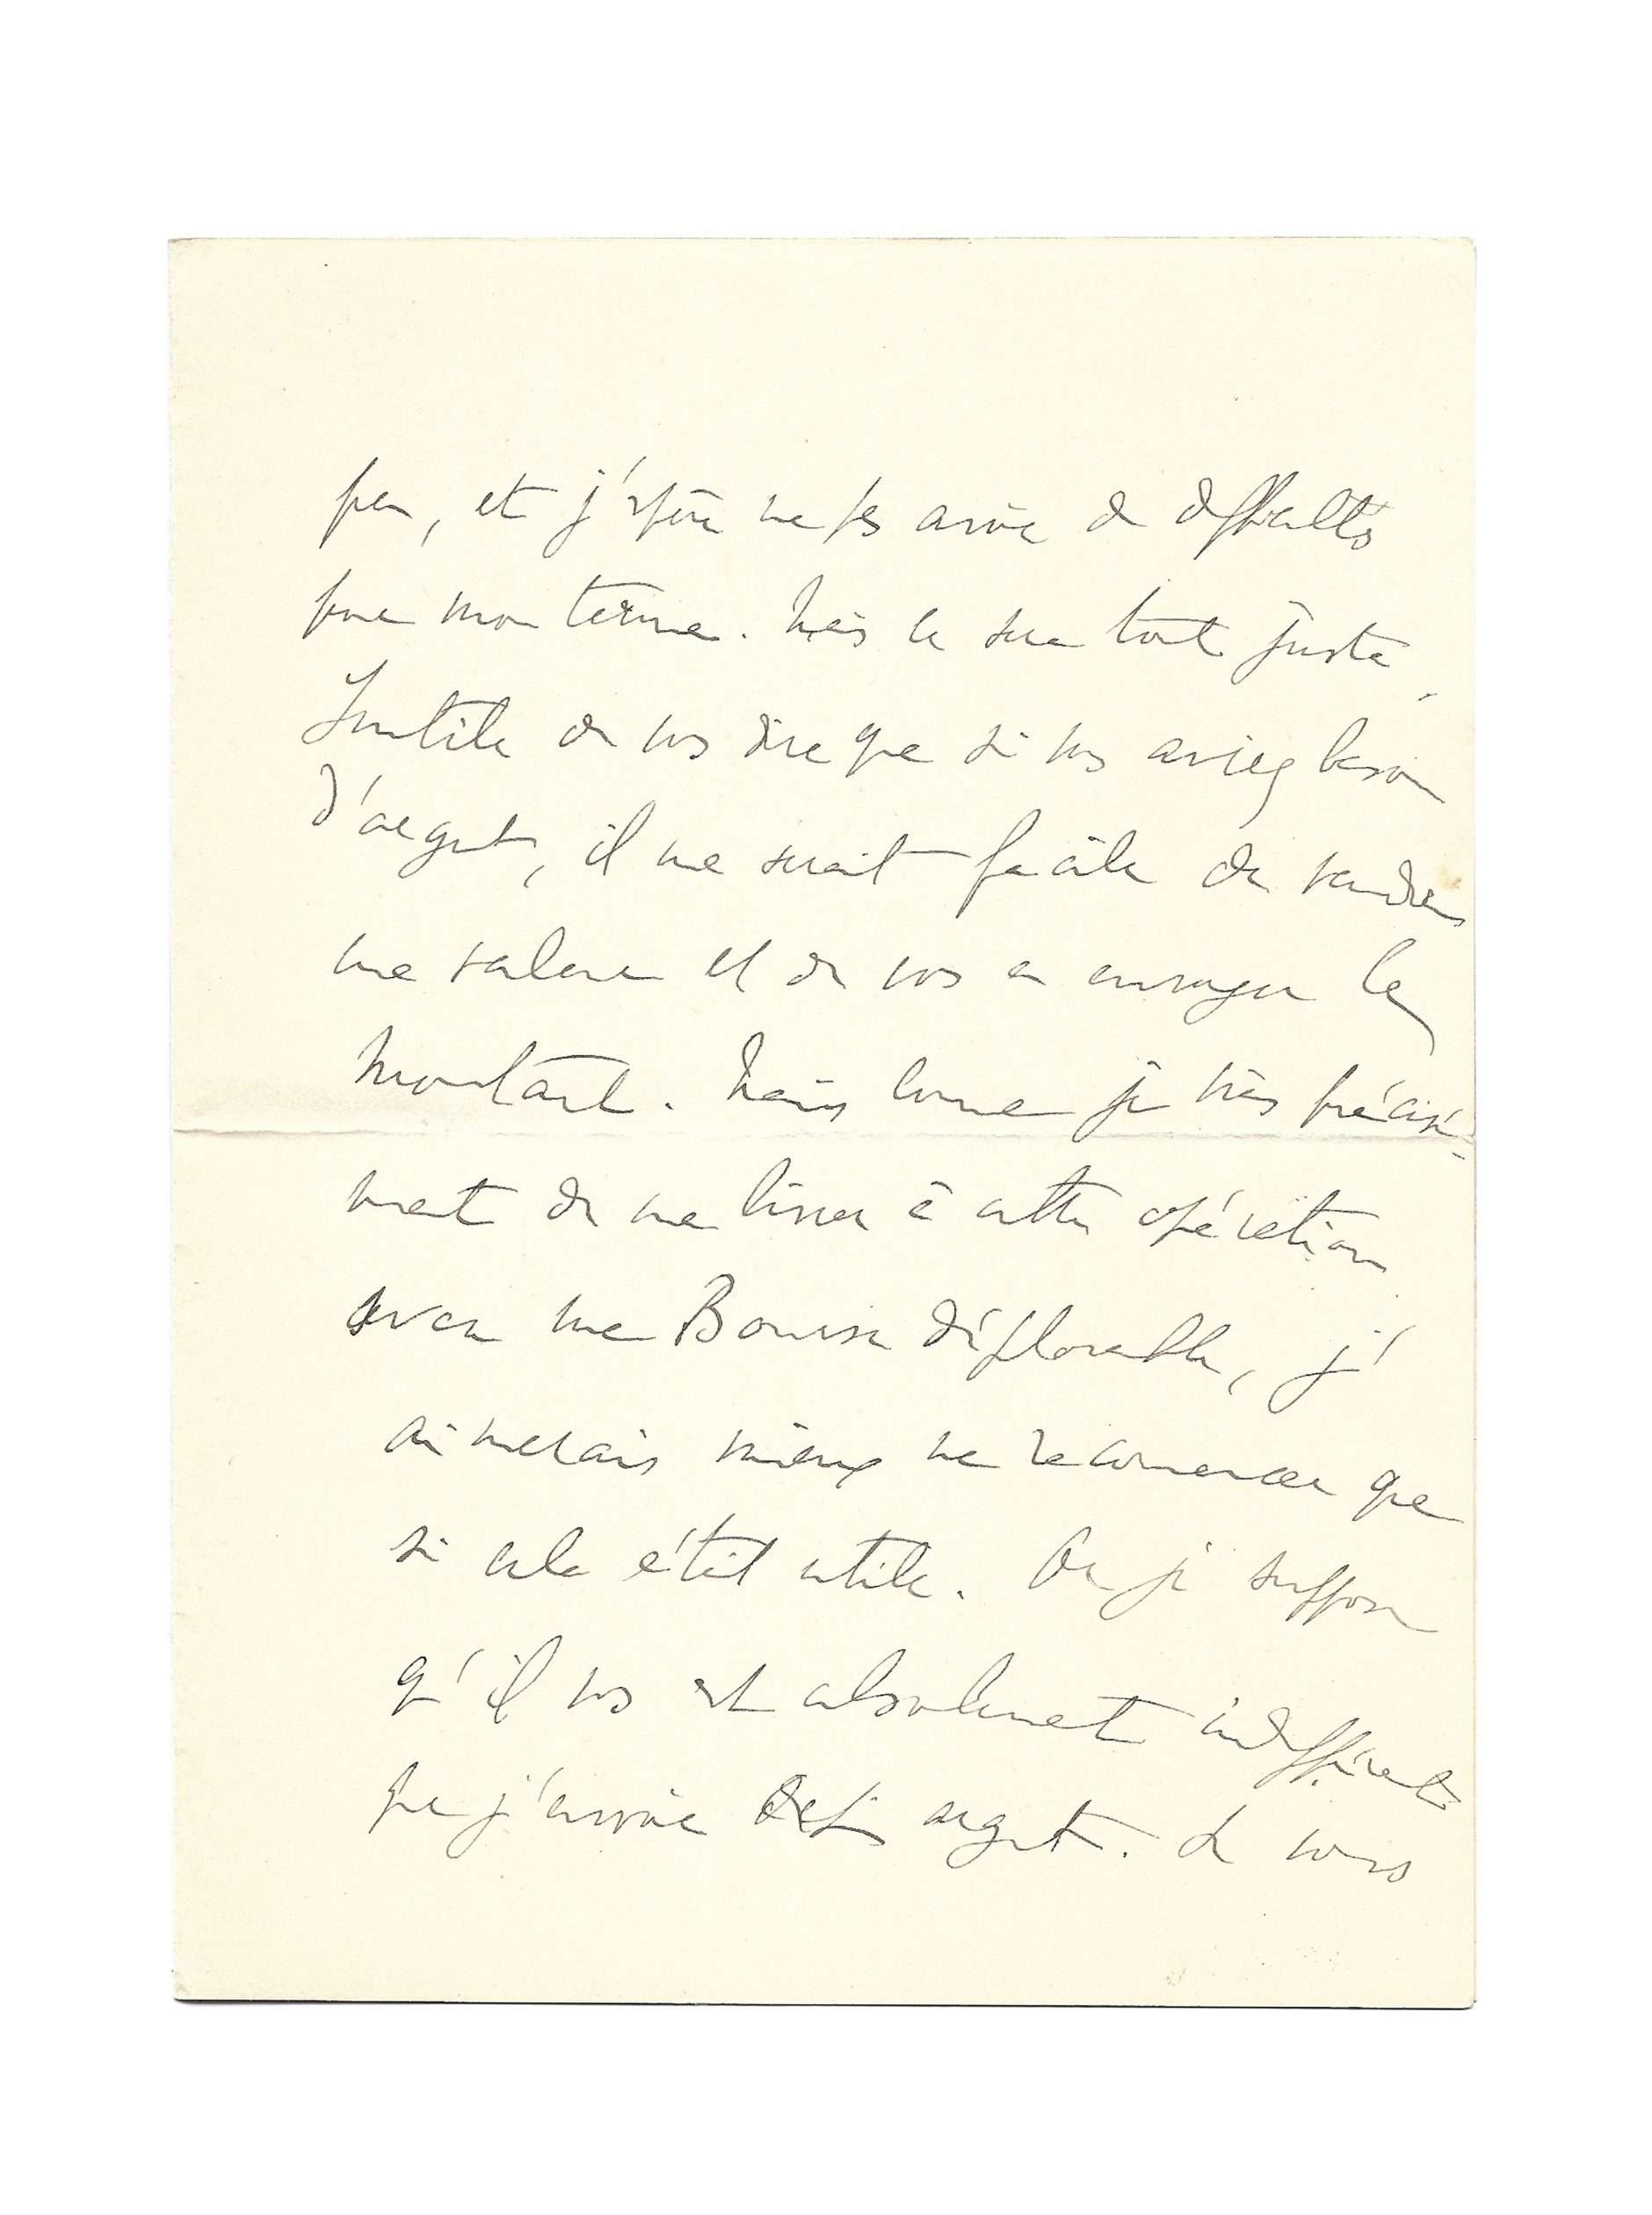 peu, et j'espère ne pas avoir de difficultés
pour mon terme. Mais ce sera tout juste.
Inutile de vous dire que si vous aviez besoin
d'argent, il me serait facile de vendre
une valeur et de vous en envoyer le
montant. Mais comme je viens précisé-
ment de me livrer à cette opération
avec une Bourse déplorable, j'
aimerais mieux ne recommencer que
si cela était utile. Or je suppose
qu'il vous est absolument indifférent
que j'envoie argent. Si vous